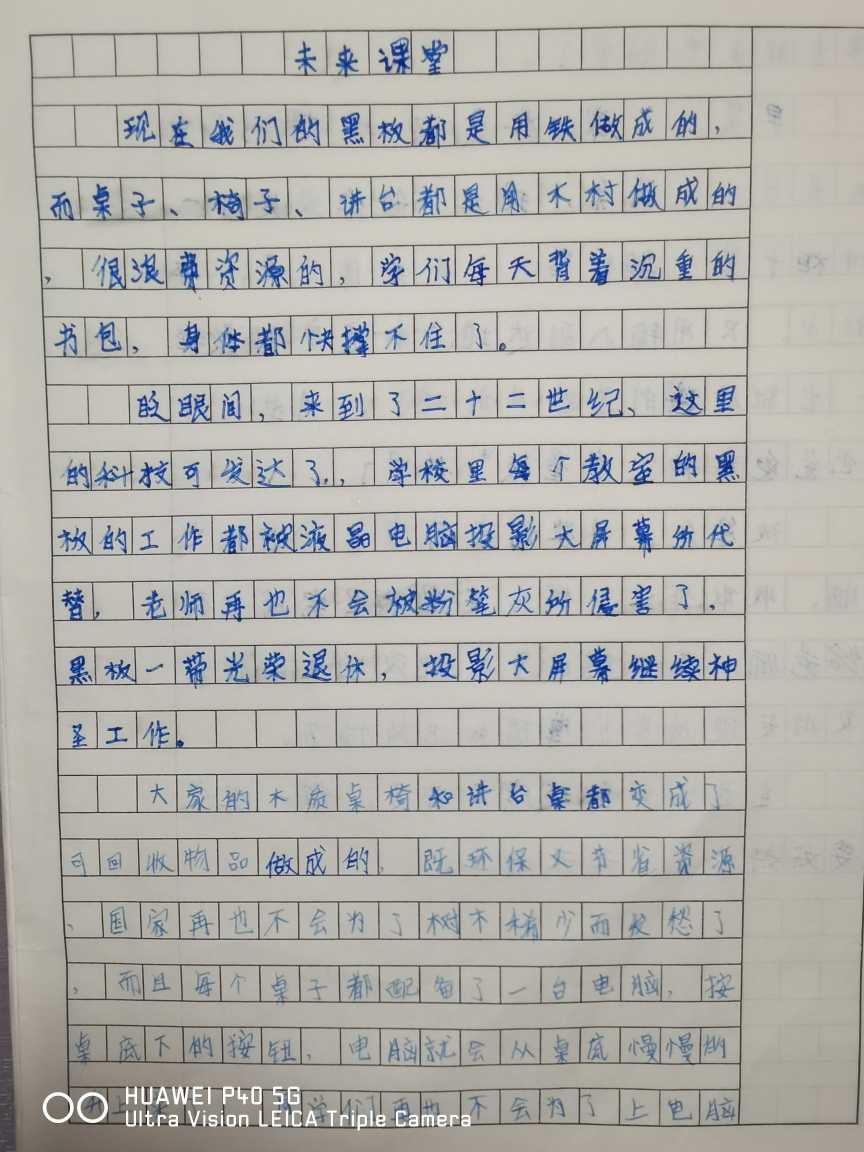 未来课堂
现在我们的黑板都是用铁做成的，
而桌子、椅子、讲台都是用木材做成的
，很浪费资源的，学们每天背着沉重的
书包，身体都快撑不住了。
眨眼间，来到了二十二世纪、这里
的科技可发达了，学校里每个教室的黑
板的工作都被液晶电脑投影大屏幕所代
替，老师再也不会被粉笔灰所侵害了，
黑板一带光荣退休，投影大屏幕继续神
圣工作。
大家的木质桌椅和讲台桌都变成了
可回收物品做成的，既环保又节省资源
、国家再也不会为了树木稀少而发愁了
，而且每个桌子都配备了一台电脑，按
桌底下的按钮，电脑就会从桌底慢慢的
升上 学们再也不会为了上电脑
HUAWEI P40 5G
Ultra Vision LEICA Triple Camera